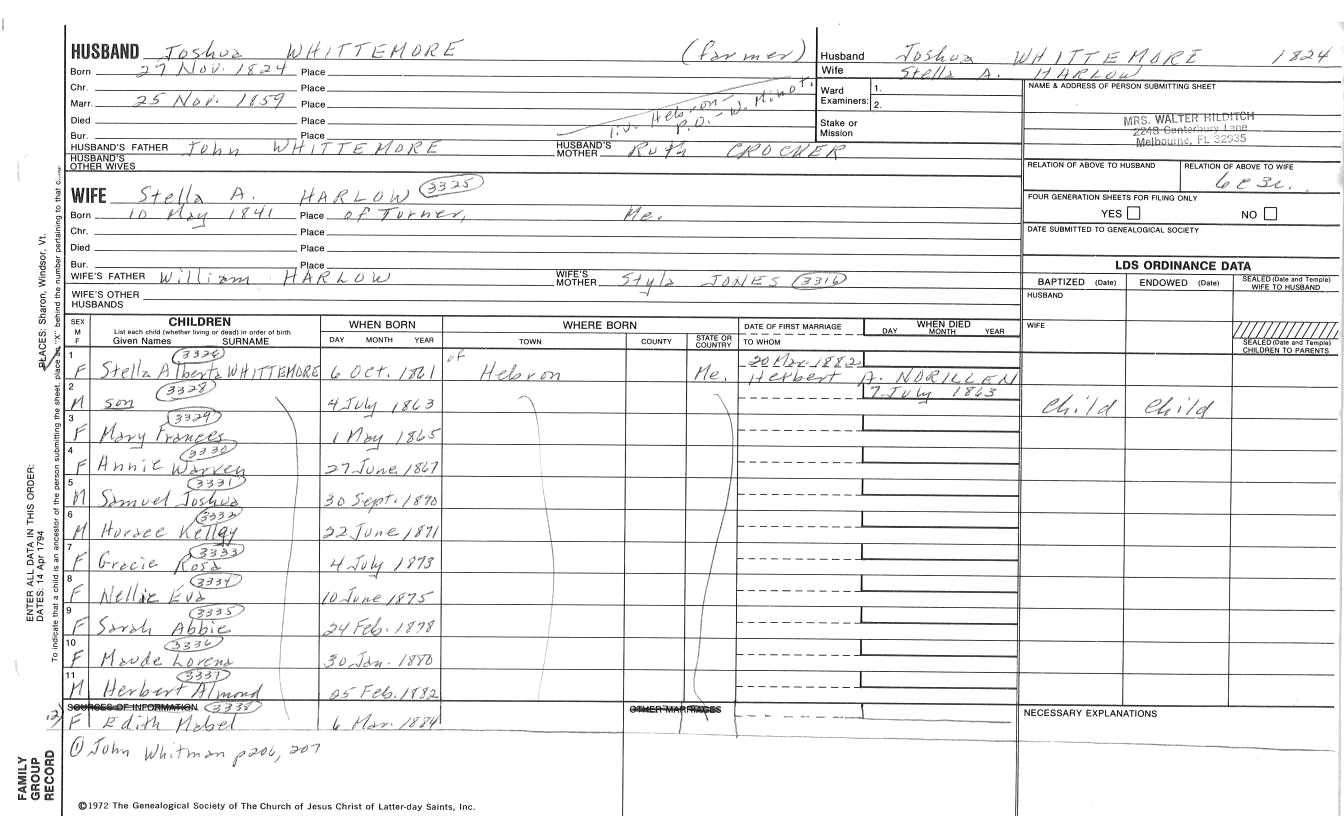 HUSBAND Joshua WHITTEMORE (farmer)
Born 27 Nov. 1824 Place
Chr. Place
Marr. 25 Nov. 1859 Place
liv. Hebron -
P.O. - W. Minot.
Died Place
Bur. Place
HUSBAND'S FATHER John WHITTEMORE HUSBAND'S MOTHER Ruth CROCKER
HUSBAND'S OTHER WIVES
WIFE Stella A. HARLOW 3325
Born 10 May 1841 Place of Turner, Me.
Chr. Place
Died Place
Bur. Place
WIFE'S FATHER William HARLOW WIFE'S MOTHER Style JONES 3316
WIFE'S OTHER HUSBANDS
Husband Joshua WHITTEMORE 1824
Wife Stella A. HARLOW
Ward 1.
Examiners: 2.
Stake or
Mission
NAME & ADDRESS OF PERSON SUBMITTING SHEET
MRS. WALTER HILDITCH
2248 Canterbury Lane
Melbourne, FL 32935
RELATION OF ABOVE TO HUSBAND RELATION OF ABOVE TO WIFE
6c3r.
FOUR GENERATION SHEETS FOR FILING ONLY
YES NO
DATE SUBMITTED TO GENEALOGICAL SOCIETY
LDS ORDINANCE DATA
BAPTIZED (Date) ENDOWED (Date) SEALED (Date and Temple) WIFE TO HUSBAND
HUSBAND
WIFE
SEALED (Date and Temple) CHILDREN TO PARENTS
SEX M F CHILDREN WHEN BORN WHERE BORN DATE OF FIRST MARRIAGE WHEN DIED
List each child (whether living or dead) in order of birth
Given Names SURNAME DAY MONTH YEAR TOWN COUNTY STATE OR COUNTRY TO WHOM DAY MONTH YEAR
1 3326 of 20 Mar. 1882
F Stella Alberta WHITTEMORE 6 Oct. 1861 Hebron Me. Herbert A. NORILLEN
2 3328 7 July 1863
M son 4 July 1863 Child Child
3 3329
F Mary Frances 1 May 1865
4 3330
F Annie Warren 27 June 1867
5 3331
M Samuel Joshua 30 Sept. 1870
6 3332
M Horace Kelley 22 June 1871
7 3333
F Gracie Rosa 4 July 1873
8 3334
F Nellie Eva 10 June 1875
9 3335
F Sarah Abbie 24 Feb. 1878
10 3336
F Maude Lorena 30 Jan. 1880
11 3337
M Herbert Almond 25 Feb. 1882
SOURCES OF INFORMATION 3338 OTHER MARRIAGES NECESSARY EXPLANATIONS
12 F Edith Mabel 6 Mar. 1884
① John Whitman p206, 207
©1972 The Genealogical Society of The Church of Jesus Christ of Latter-day Saints, Inc.
FAMILY
GROUP
RECORD
ENTER ALL DATA IN THIS ORDER:
DATES: 14 Apr 1794
PLACES: Sharon, Windsor, Vt.
To indicate that a child is an ancestor of the person submitting the sheet, place an "X" behind the number pertaining to that